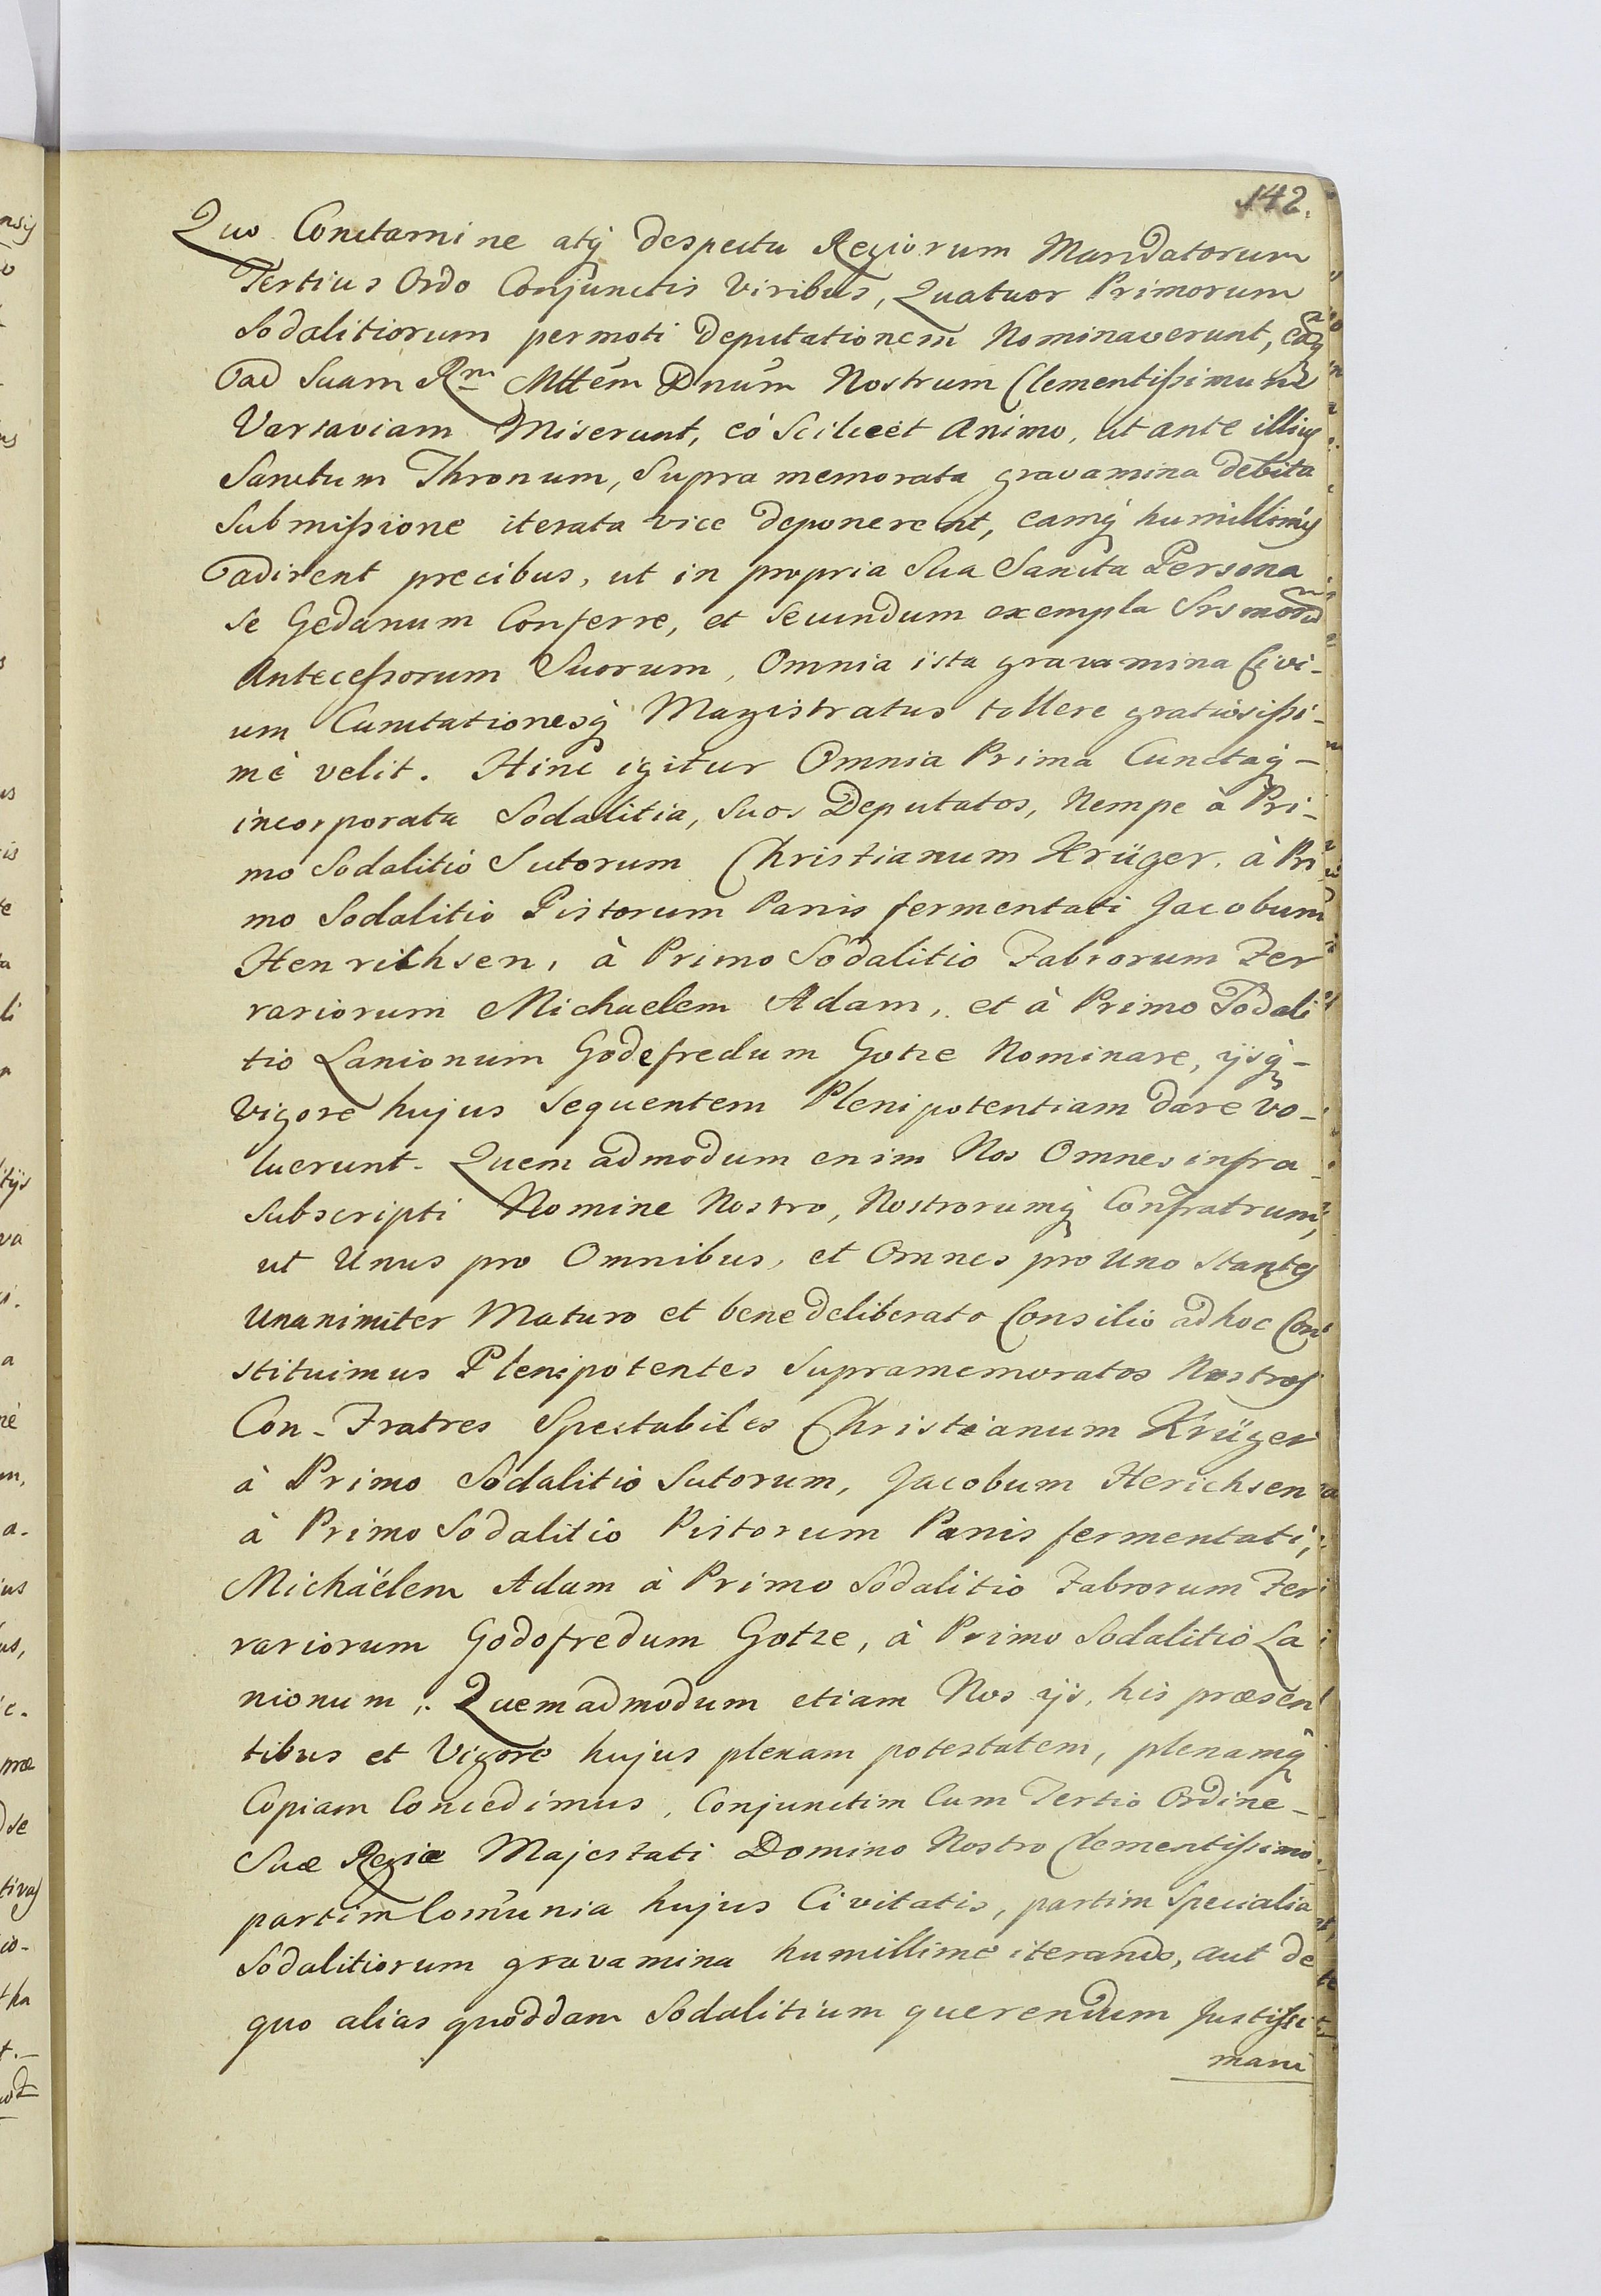 142.
Quo Conctamine atq despectu Regiorum Mandatorum
Tertius Ordo Conjunctis Viribus, Quatuor Primorum
Sodalitiorum permoti Deputationem Nominaverunt, eãq
ad Suam Rm Mttem Dnum Nostrum Clementißimum
Varsaviam Miserunt, eó Scilicèt Animo, ut ante illius
Sanctum Thronum, Supra memorata gravamina debita
Submißione iterata vice deponerent, eamq humillimis
adirent precibus, ut in propria Sua Sancta Persona
se Gedanum Conferre, et Secundum exempla
Anteceßorum Suorum, Omnia ista gravamina Civi-
um Cunctationesq Magistratus tollere gratiosißi-
mè velit. Hinc igitur Omnia Prima Cunctaq-
incorporata Sodalitia, Suos Deputatos, Nempe à Pri-
mo Sodalitio Sutorum Christianum Krüger, à Pri
mo Sodalitio Pistorum Panis fermentati Jacobum
Henrichsen, à Primo Sodalitio Fabrorum Fer
rariorum Michaelem Adam, et à Primo Sodali
tio Lanionum Godefredum Gotze Nominare, ijsq-
Vigore hujus Sequentem Plenipotentiam dare vo-
luerunt. Quem admodum enim Nos Omnes infra
subscripti Nomine Nostro, Nostrorumq Confratrum,
ut Unus pro Omnibus, et Omnes pro Uno Stantes
Unanimiter Maturo et bene deliberato Consilio ad hoc Con
stituimus Plenipotentes Supramemoratos Nostros
Con-Fratres Spectabiles Christianum Krüger
à Primo Sodalitio Sutorum, Jacobum Herichsen
à Primo Sodalitio Pistorum Panis fermentati,
Michäelem Adam à Primo Sodalitio Fabrorum Fer
rariorum Godofredum Gotze, à Primo Sodalitio La
nionum, Quemadmodum etiam Nos ijs, his præsen
tibus et Vigore hujus plenam potestatem, plenamq
Copiam Concedimus, Conjunctim Cum Tertio Ordine-
Suæ Regiæ Majestati Domino Nostro Clementißimo
partim Com̃unia hujus Civitatis, partim Specialia
Sodalitiorum gravamina humillimè iterando, aut de
quo alias quoddam Sodalitium querendum Justißi
mam